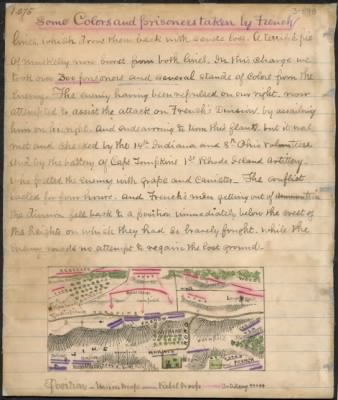 1075
Some Colors and prisoners taken by French
lines, which drove them back with severe loss. A terrific fire
of musketry now burst from both lines. In this charge we
took over 300 prisoners and several stands of Colors from the
Enemy. The enemy having been repulsed on our right, now
attempted to assist the attack on French's Division, by assailing
him on his right. And endeavoring to turn this flank, but is was
met and checked by the 14th Indiana and 8th Ohio volunteers
and by the battery of Capt Tompkins 1st Rhode Island Artillery.
who pelted the enemy with grape and canister. The conflict
lasted for four hours. And French's men getting out of
the Division fell back to a position immediately below the crest of
the heights on which they had so bravely fought. while the
enemy made no attempt to regain the lost ground.
FRENCH
LINE
ROAD
Position
Union Troops
Rebel Troops
Artillery